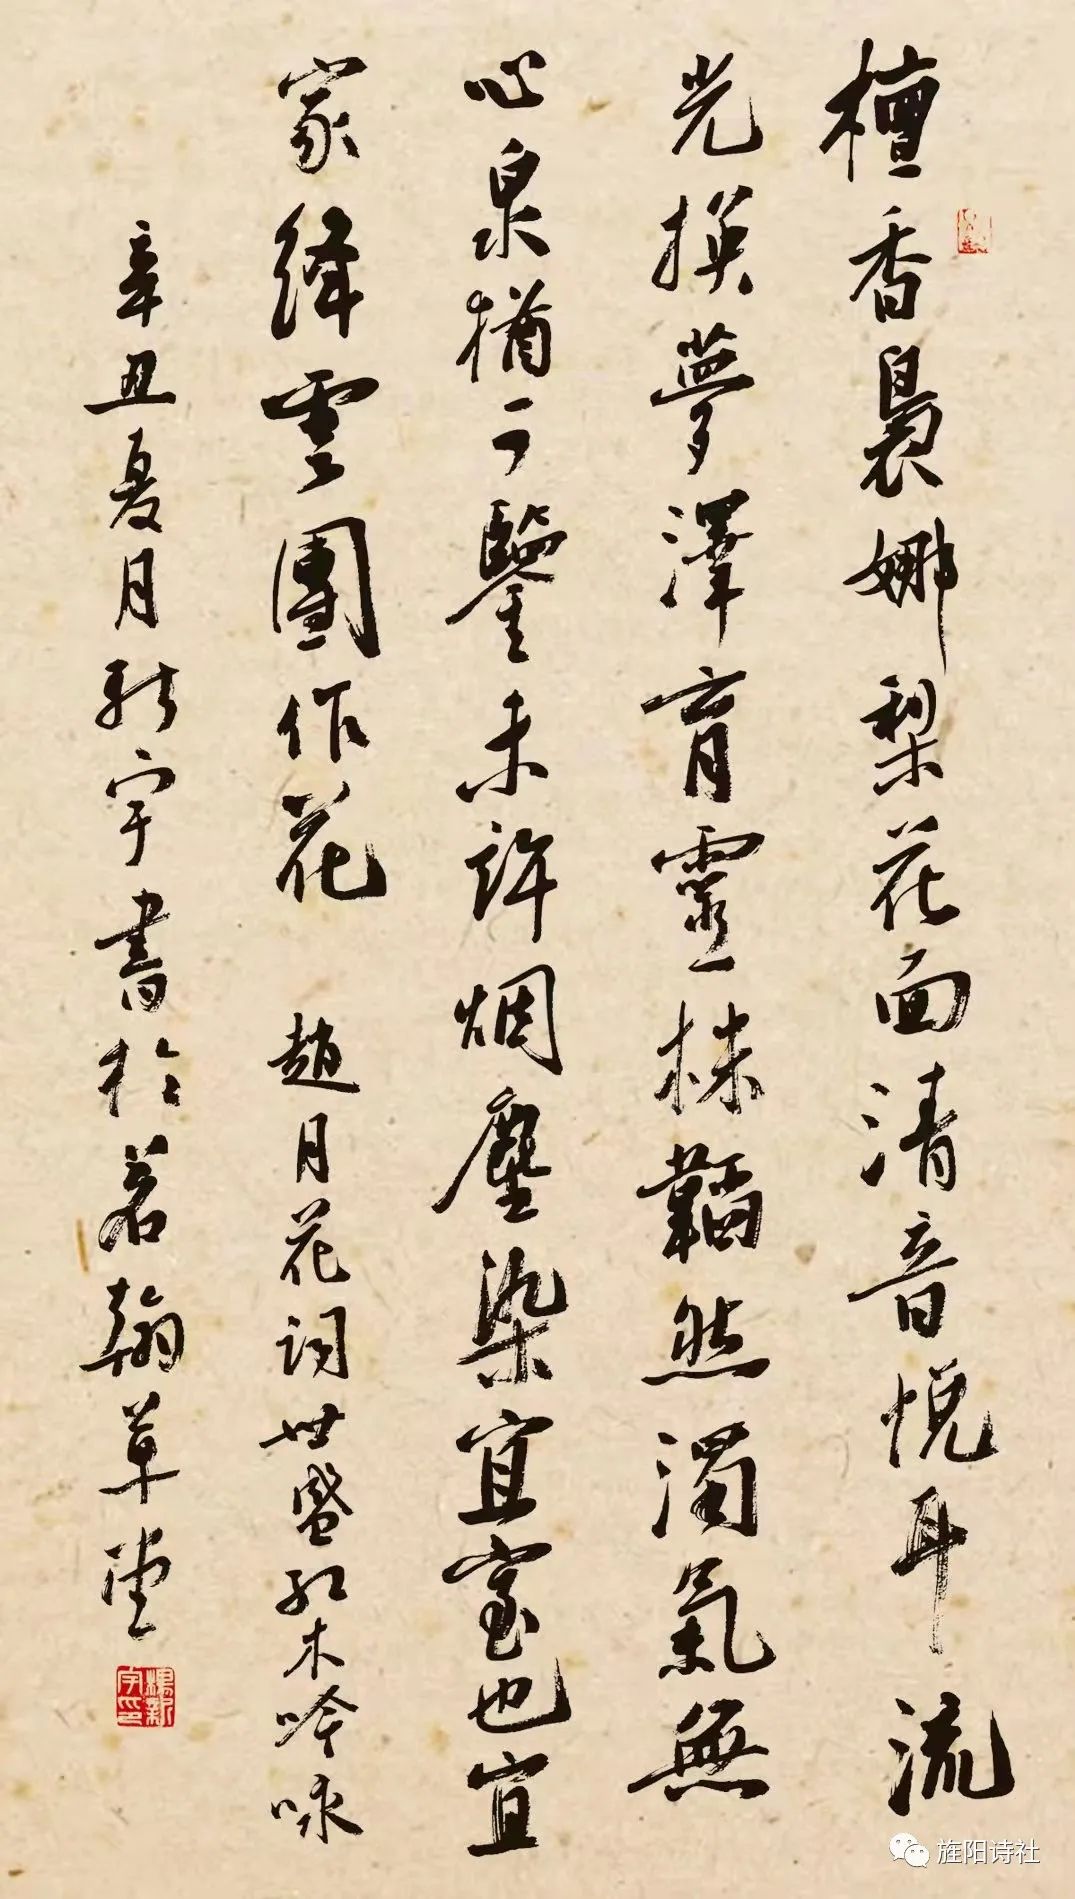 檀香裊娜梨花面清音悦耳流
光夢澤育靈株韜然濁氣無
心泉猶可鑒未許烟塵染宜室也宜
家絳雲團作花 趙月花詞世盛红木吟咏
辛丑夏月新宇書於若翰草堂
楊新宇印
旌阳诗社